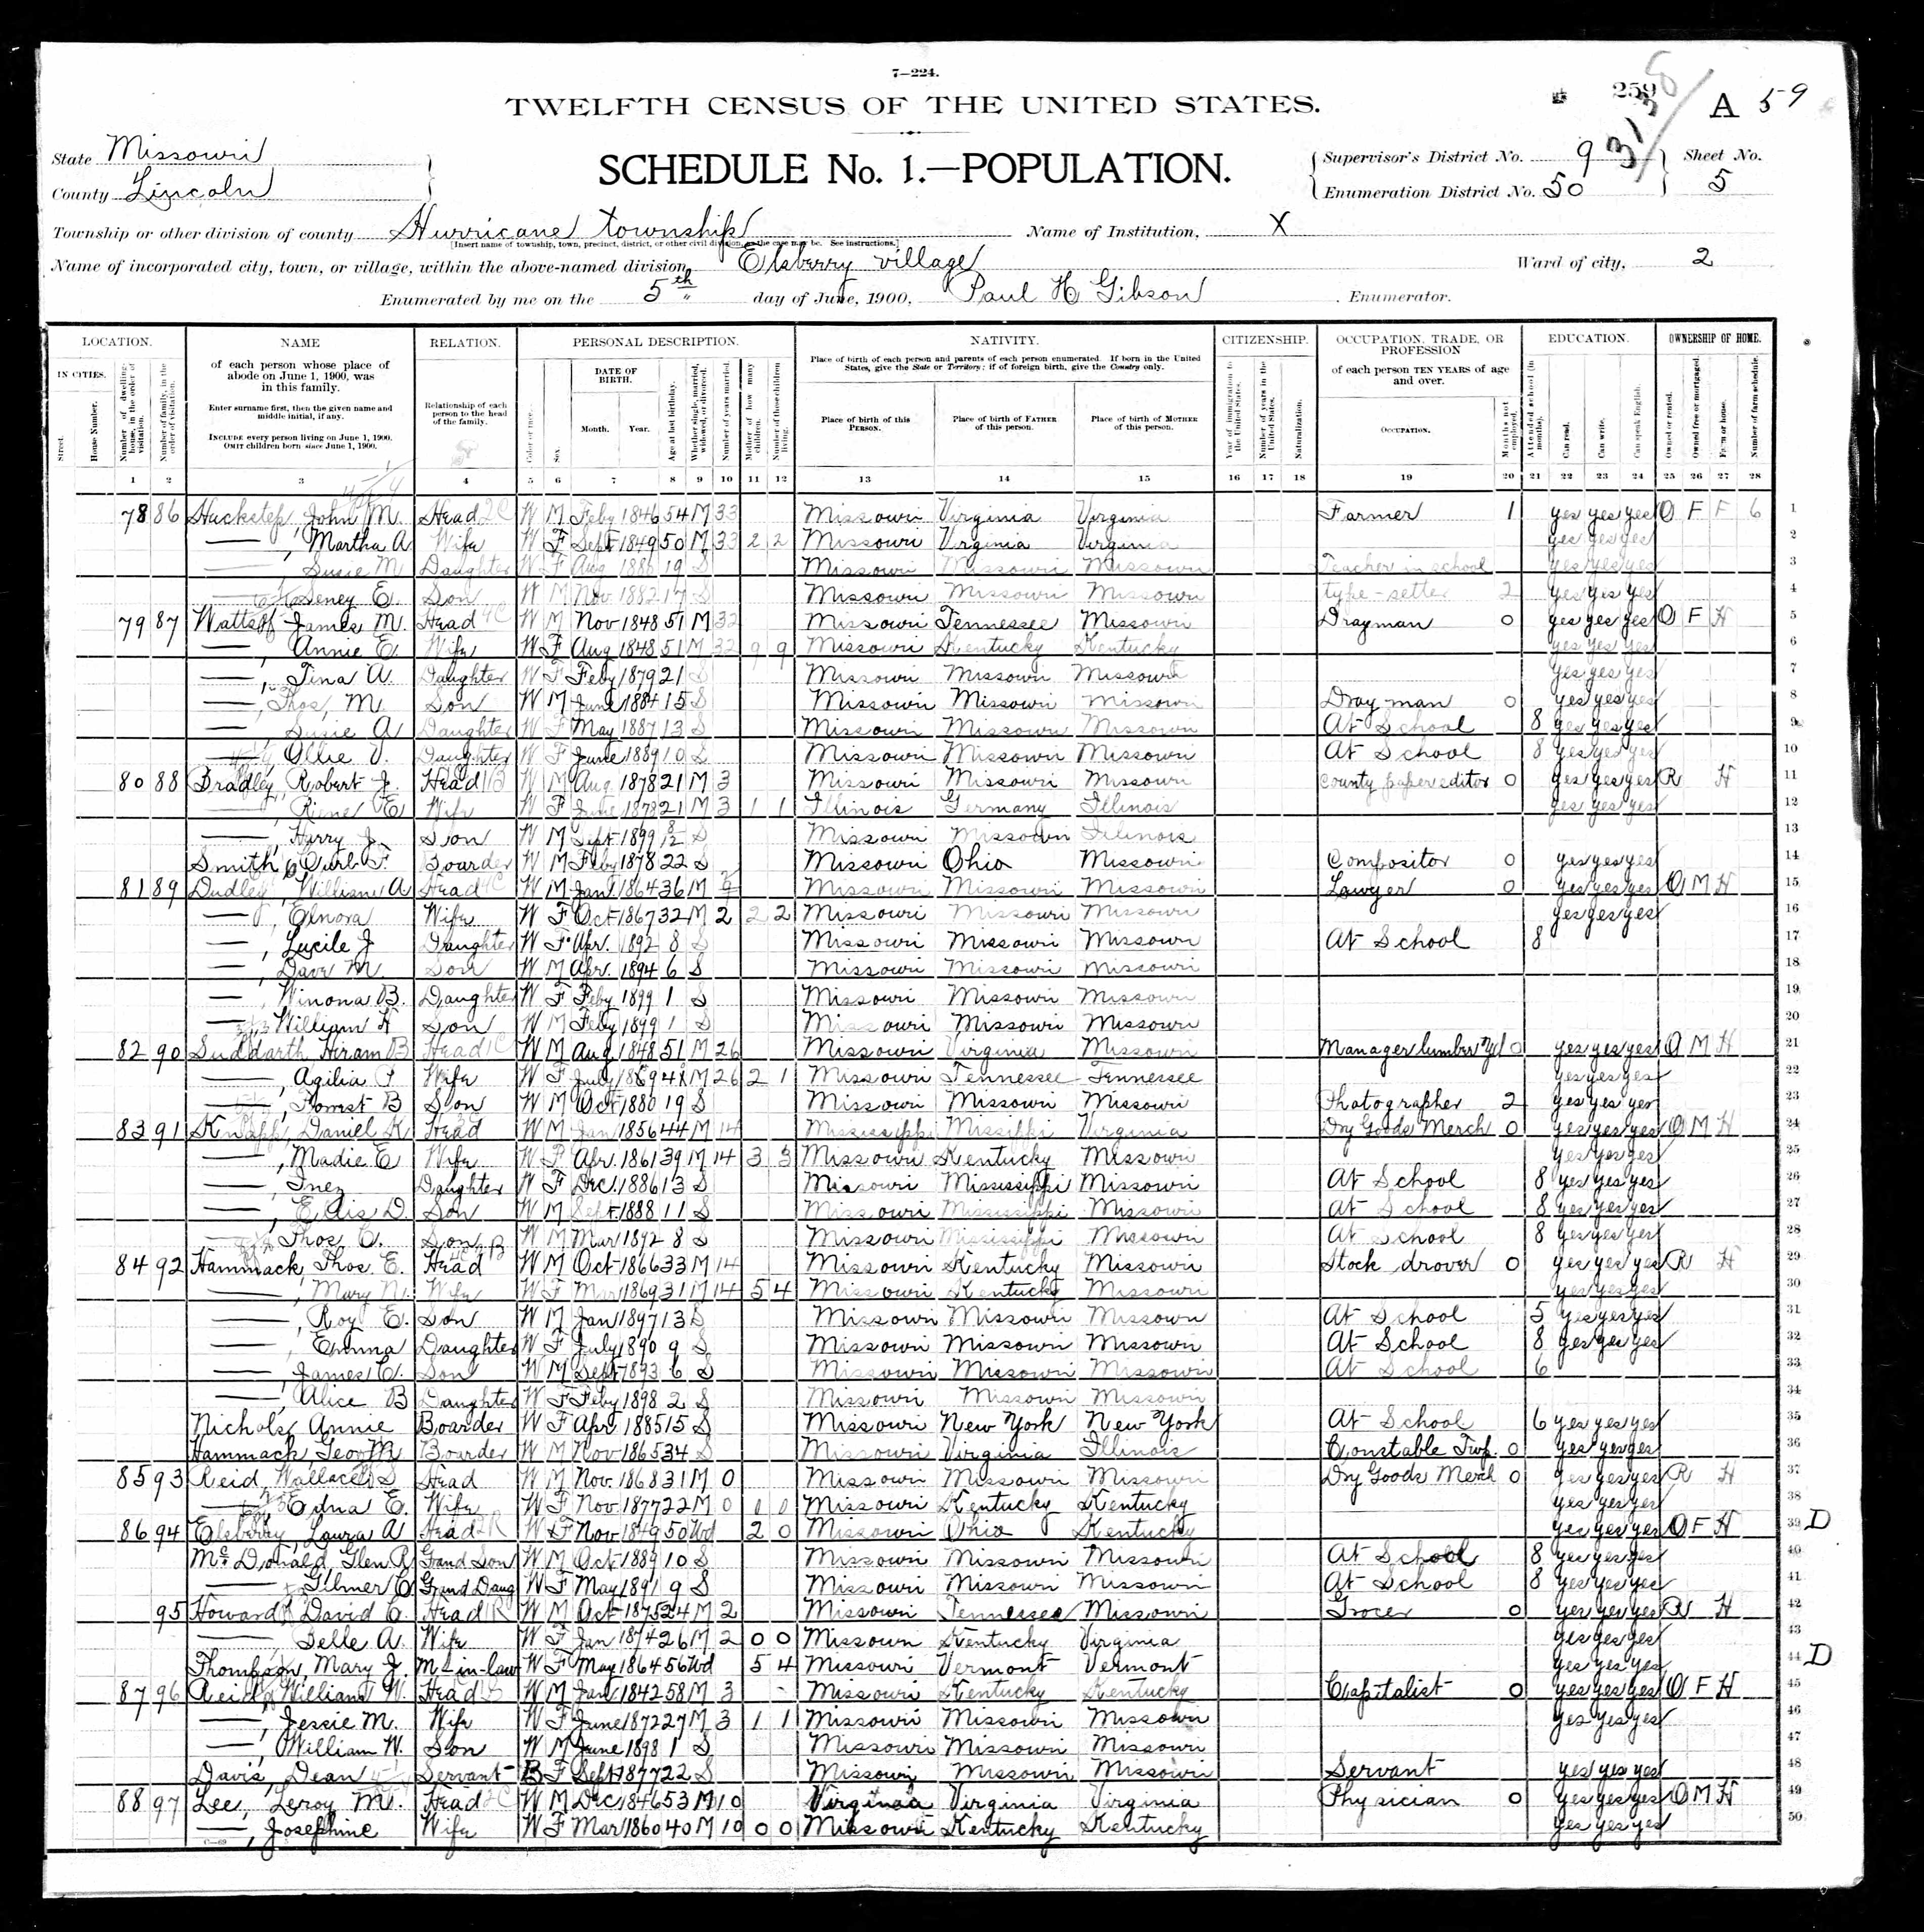 7—224.
259
A 59
TWELFTH CENSUS OF THE UNITED STATES.
State Missouri
County Lincoln
SCHEDULE No. 1.—POPULATION.
Supervisor's District No. 9
Enumeration District No. 50
Sheet No.
5
Township or other division of county Hurricane township Name of Institution, X
[Insert name of township, town, precinct, district, or other civil division, as the case may be. See instructions.]
Name of incorporated city, town, or village, within the above-named division, Elsberry village Ward of city, 2
Enumerated by me on the 5th day of June, 1900, Paul H Gibson, Enumerator.
LOCATION. NAME RELATION. PERSONAL DESCRIPTION. NATIVITY. CITIZENSHIP. OCCUPATION, TRADE, OR PROFESSION EDUCATION. OWNERSHIP OF HOME.
IN CITIES.
Street.
House Number.
Number of dwelling-house, in the order of visitation.
Number of family, in the order of visitation.
of each person whose place of abode on June 1, 1900, was in this family.
Enter surname first, then the given name and middle initial, if any.
INCLUDE every person living on June 1, 1900.
OMIT children born since June 1, 1900.
Relationship of each person to the head of the family.
Color or race.
Sex.
DATE OF BIRTH.
Month. Year.
Age at last birthday.
Whether single, married, widowed, or divorced.
Number of years married.
Mother of how many children.
Number of these children living.
Place of birth of each person and parents of each person enumerated. If born in the United States, give the State or Territory; if of foreign birth, give the Country only.
Place of birth of this PERSON.
Place of birth of FATHER of this person.
Place of birth of MOTHER of this person.
Year of immigration to the United States.
Number of years in the United States.
Naturalization.
of each person TEN YEARS of age and over.
OCCUPATION.
Months not employed.
Attended school (in months).
Can read.
Can write.
Can speak English.
Owned or rented.
Owned free or mortgaged.
Farm or house.
Number of farm schedule.
1 2 3 4 5 6 7 8 9 10 11 12 13 14 15 16 17 18 19 20 21 22 23 24 25 26 27 28
78 86 Huckstep, John M. Head W M Feby 1846 54 M 33 Missouri Virginia Virginia Farmer 1 yes yes yes O F F 6 1
—, Martha A Wife W F Sept 1849 50 M 33 2 2 Missouri Virginia Virginia yes yes yes 2
— Susie M Daughter W F Aug 19 S Missouri Missouri Missouri Teacher in school yes yes yes 3
— E. Son W M Nov 1882 17 S Missouri Missouri Missouri type-setter 2 yes yes yes 4
79 87 Watts James M. Head W M Nov 1848 51 M 32 Missouri Tennessee Missouri Drayman 0 yes yes yes O F H 5
—, Annie E. Wife W F Aug 1848 51 M 32 9 9 Missouri Kentucky Kentucky yes yes yes 6
—, Tina A. Daughter W F Feby 1879 21 S Missouri Missouri Missouri yes yes yes 7
—, Thos, M. Son W M June 1884 15 S Missouri Missouri Missouri Dray man 0 yes yes yes 8
—, Susie A Daughter W F May 1887 13 S Missouri Missouri Missouri At School 8 yes yes yes 9
— Ollie V. Daughter W F June 1889 10 S Missouri Missouri Missouri At School 8 yes yes yes 10
80 88 Bradley, Robert J. Head W M Aug 1878 21 M 3 Missouri Missouri Missouri County paper editor 0 yes yes yes R H 11
—, E Wife W F June 1878 21 M 3 1 1 Illinois Germany Illinois yes yes yes 12
—, Harry J. Son W M Sept 1899 8/12 S Missouri Missouri Illinois 13
Smith, F. Boarder W M Feby 1878 22 S Missouri Ohio Missouri Compositor 0 yes yes yes 14
81 89 Dudley, William A Head W M Jan 1864 36 M Missouri Missouri Missouri Lawyer 0 yes yes yes O M H 15
—, Elnora Wife W F Oct 1867 32 M 2 2 2 Missouri Missouri Missouri yes yes yes 16
—, Lucile J Daughter W F Apr. 1892 8 S Missouri Missouri Missouri At School 8 17
—, Dave M. Son W M Apr. 1894 6 S Missouri Missouri Missouri 18
—, Winona B. Daughter W F Feby 1899 1 S Missouri Missouri Missouri 19
— William H Son W M Feby 1899 1 S Missouri Missouri Missouri 20
82 90 Suddarth, Hiram B Head W M Aug 1848 51 M 26 Missouri Virginia Missouri Manager lumber Yd 0 yes yes yes O M H 21
—, Agilia P Wife W F July M 26 2 1 Missouri Tennessee Tennessee yes yes yes 22
—, Forrest B Son W M Oct 1880 19 S Missouri Missouri Missouri Photographer 2 yes yes yes 23
83 91 Knapp, Daniel K Head W M Jan 1856 44 M 14 Mississippi Missippi Virginia Dry Goods Merch 0 yes yes yes O M H 24
—, Madie E Wife W F Apr. 1861 39 M 14 3 3 Missouri Kentucky Missouri yes yes yes 25
—, Inez Daughter W F Dec. 1886 13 S Missouri Mississippi Missouri At School 8 yes yes yes 26
—, Ellis D. Son W M Sept 1888 11 S Missouri Mississippi Missouri At School 8 yes yes yes 27
— Thos C. Son W M Mar 1892 8 S Missouri Mississippi Missouri At School 8 yes yes yes 28
84 92 Hammack, Thos. E. Head W M Oct 1866 33 M 14 Missouri Kentucky Missouri Stock drover 0 yes yes yes R H 29
—, Mary N. Wife W F Mar 1869 31 M 14 5 4 Missouri Kentucky Missouri yes yes yes 30
—, Roy E. Son W M Jan 1897 13 S Missouri Missouri Missouri At School 5 yes yes yes 31
—, Emma Daughter W F July 1890 9 S Missouri Missouri Missouri At School 8 yes yes yes 32
—, James C. Son W M Sept 1893 6 S Missouri Missouri Missouri At School 6 33
—, Alice B Daughter W F Feby 1898 2 S Missouri Missouri Missouri 34
Nichols, Annie Boarder W F Apr 1885 15 S Missouri New York New York At School 6 yes yes yes 35
Hammack, Geo M Boarder W M Nov 1865 34 S Missouri Virginia Illinois Constable Twp. 0 yes yes yes 36
85 93 Reid, Wallace S Head W M Nov. 1868 31 M 0 Missouri Missouri Missouri Dry Goods Merch 0 yes yes yes R H 37
— Edna E. Wife W F Nov. 1877 22 M 0 0 0 Missouri Kentucky Kentucky yes yes yes 38
86 94 Elsberry Laura A Head W F Nov 1849 50 Wd 2 0 Missouri Ohio Kentucky yes yes yes O F H 39 D
McDonald, Glen R Grand Son W M Oct 1889 10 S Missouri Missouri Missouri At School 8 yes yes yes 40
—, Gilmer C Grand Daug W F May 1891 9 S Missouri Missouri Missouri At School 8 yes yes yes 41
95 Howard, David C. Head W M Oct 1875 24 M 2 Missouri Tennessee Missouri Grocer 0 yes yes yes R H 42
—, Telle A. Wife W F Jan 1874 26 M 2 0 0 Missouri Kentucky Virginia yes yes yes 43
Thompson, Mary J. M-in-law W F May 1864 56 Wd 5 4 Missouri Vermont Vermont yes yes yes 44 D
87 96 Reid, William W. Head W M Jan 1842 58 M 3 Missouri Kentucky Kentucky Capitalist 0 yes yes yes O F H 45
—, Jessie M. Wife W F June 1872 27 M 3 1 1 Missouri Missouri Missouri yes yes yes 46
—, William W. Son W M June 1898 1 S Missouri Missouri Missouri 47
Davis, Dean Servant B F Sept 1877 22 S Missouri Missouri Missouri Servant yes yes yes 48
88 97 Lee, Leroy M. Head W M Dec 1846 53 M 10 Virginia Virginia Virginia Physician 0 yes yes yes O M H 49
—, Josephine Wife W F Mar 1860 40 M 10 0 0 Missouri Kentucky Kentucky yes yes yes 50
C—69